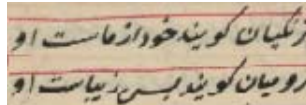 زنگیان گویند خود از ماست او
رومیان گویند بس زیباست او